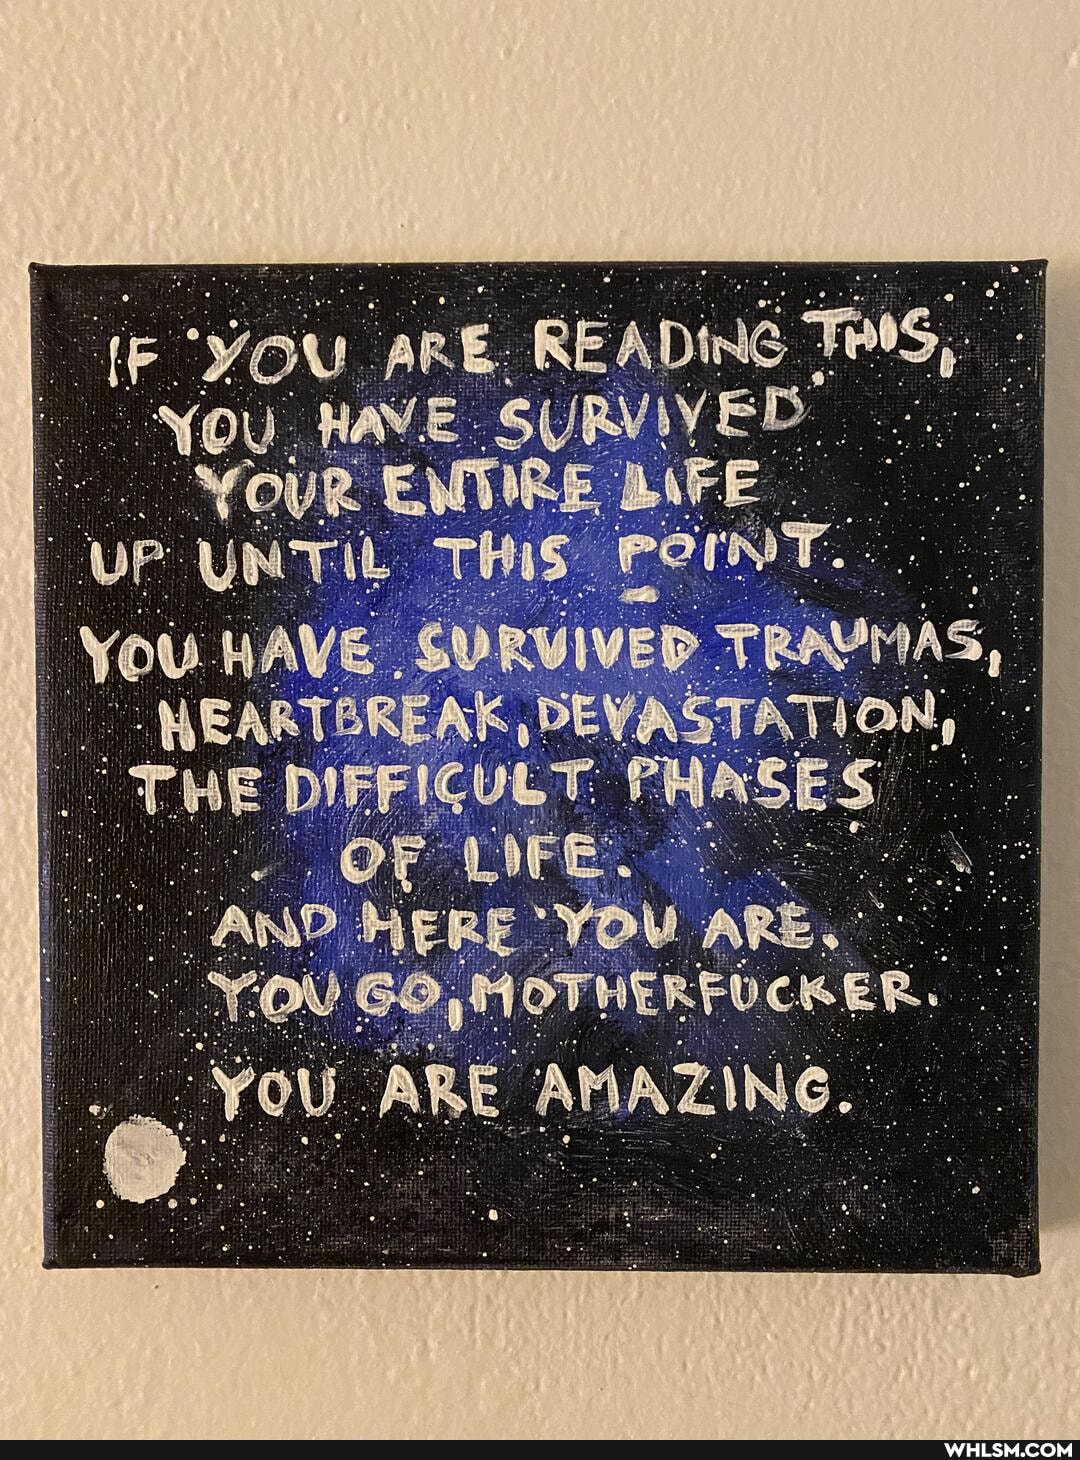 IF YOU ARE READING THIS,
YOU HAVE SURVIVED
YOUR ENTIRE LIFE
UP UNTIL THIS POINT.
YOU HAVE SURVIVED TRAUMAS,
HEARTBREAK, DEVASTATION,
THE DIFFICULT PHASES
OF LIFE.
AND HERE YOU ARE.
YOU GO, MOTHERFUCKER.
YOU ARE AMAZING.
WHLSM.COM